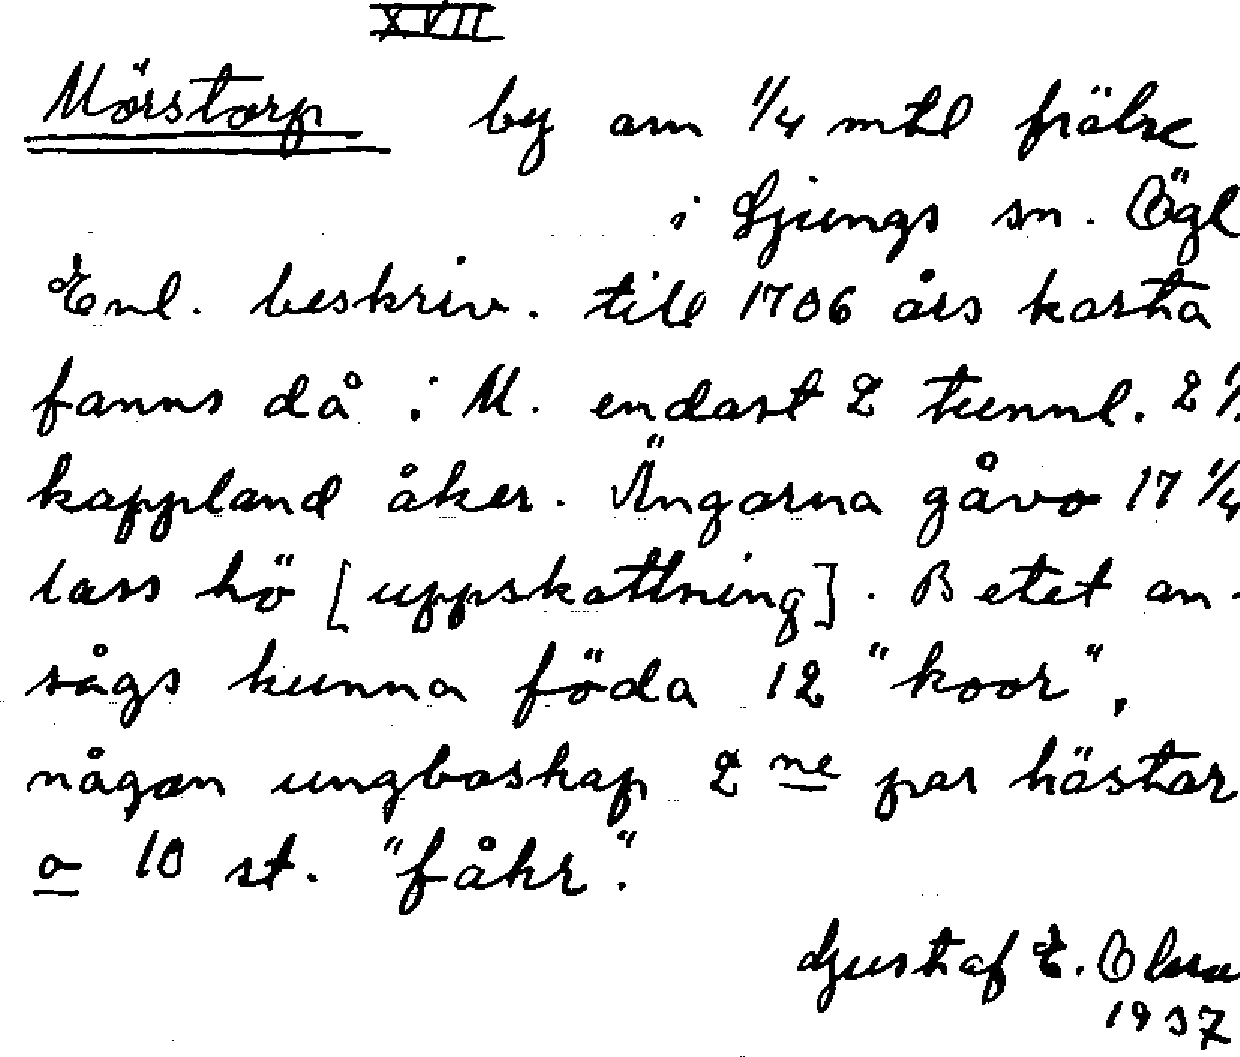 XVII
Mörstorp by om 1/4 mtl frälse
i Ljungs sn. Ögl
Enl. beskriv. till 1706 års karta
fanns då i M. endast 2 tunnl. 2 1/
kappland åker. Ängarna gåvo 17 1/4
lass hö [uppskattning]. Betet an-
sågs kunna föda 12 "koor",
någon ungboskap 2 ne par hästar
o 10 st. "fåhr".
Gustaf E. Olss
1937